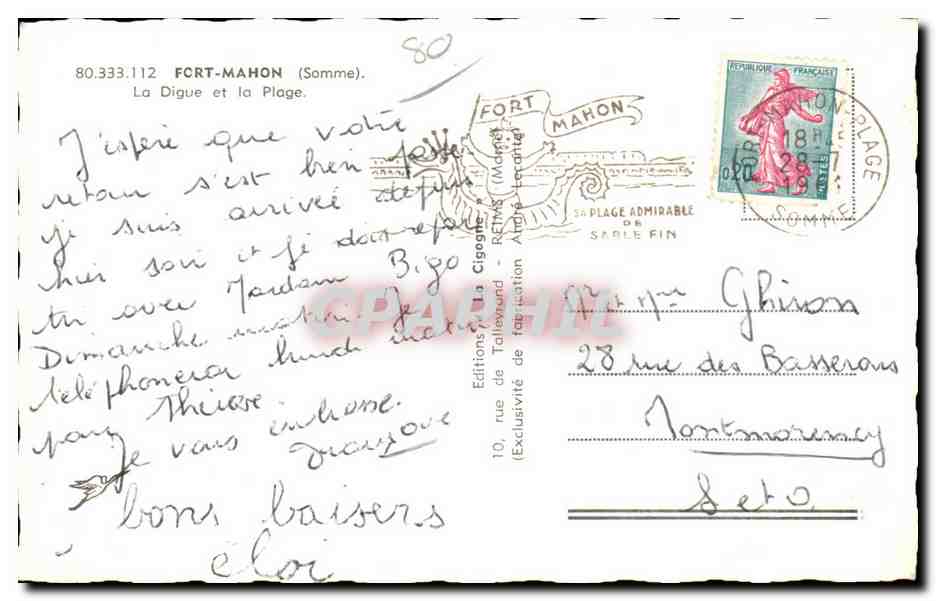 80.333.112 FORT-MAHON (Somme).
La Digue et la Plage.
80
J'espère que votre
retour s'est bien passé
je suis arrivée depuis
hier soir et je dois repar
tir avec Madam Bigo
Dimanche matin. Je
téléphonerai lundi matin
pour Thérèse.
Je vous embrasse.
bons baisers
éloi
Editions "La Cigogne"
10, rue de Talleyrand - REIMS (Marne)
(Exclusivité de fabrication André Leconte)
FORT
MAHON
SA PLAGE ADMIRABLE
DE
SABLE FIN
REPUBLIQUE FRANÇAISE
0,20
POSTES
FORT MAHON-PLAGE
18H
28-7
19
SOMME
CPARPHIL
Mr et Mme Ghiron
28 rue des Basserons
Montmorency
S et O